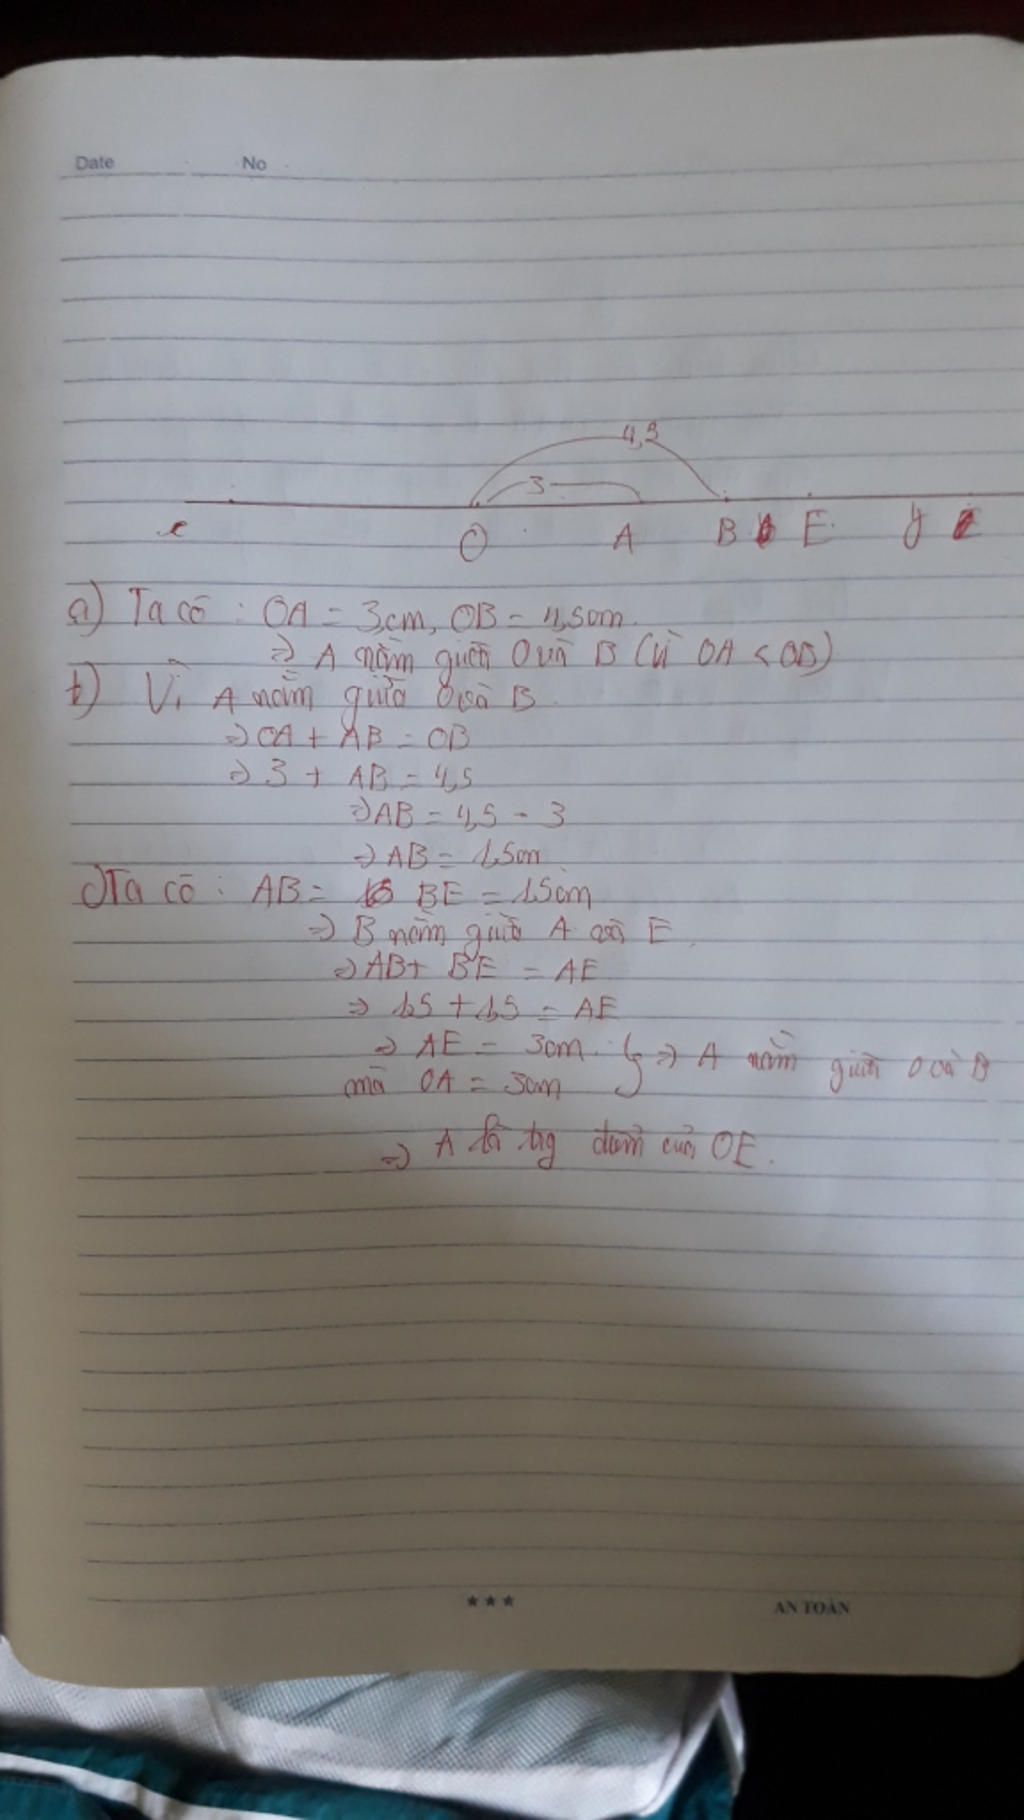 Date No
4,5
3
x O A B E y
a) Ta có : OA = 3cm, OB = 4,5cm.
=> A nằm giữa O và B (vì OA < OB)
b) Vì A nằm giữa O và B.
=> OA + AB = OB
=> 3 + AB = 4,5
=> AB = 4,5 - 3
=> AB = 1,5cm
c) Ta có : AB = BE = 1,5cm
=> B nằm giữa A và E.
=> AB + BE = AE
=> 1,5 + 1,5 = AE
=> AE = 3cm. } => A nằm giữa O và B
mà OA = 3cm
=> A là trg điểm của OE.
*** AN TOÀN